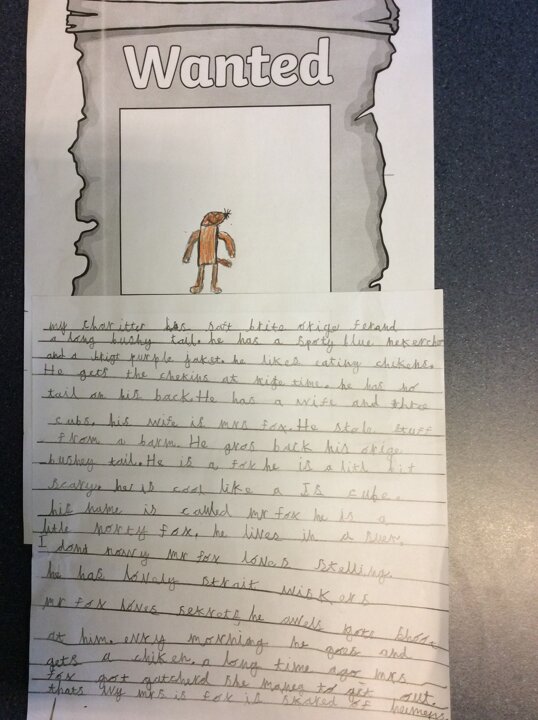 Wanted
my charitter has soft brite orige fer and
a long bushy tail. he has a spoty blue nekerche
and a purple he likes eating chikens.
He gets the chekins at time. he has no
tail on his back. He has a wife and three
cubs. his wife is mrs fox. He stole stuff
from a barm. He gros back his orige
bushey tail. He is a fox he is a bit
scary. he is cool like a Is cube.
his name is called mr fox he is a
litle norty fox. he lives in a
I dont mr fox loves stelling.
he has lovely strait wiskers
mr fox loves sekrets he gets shoot
at him. evry morning he goes and
gets a chiken. a long time ago mrs
fox got she to get out.
thats wy mrs is fox is skared of